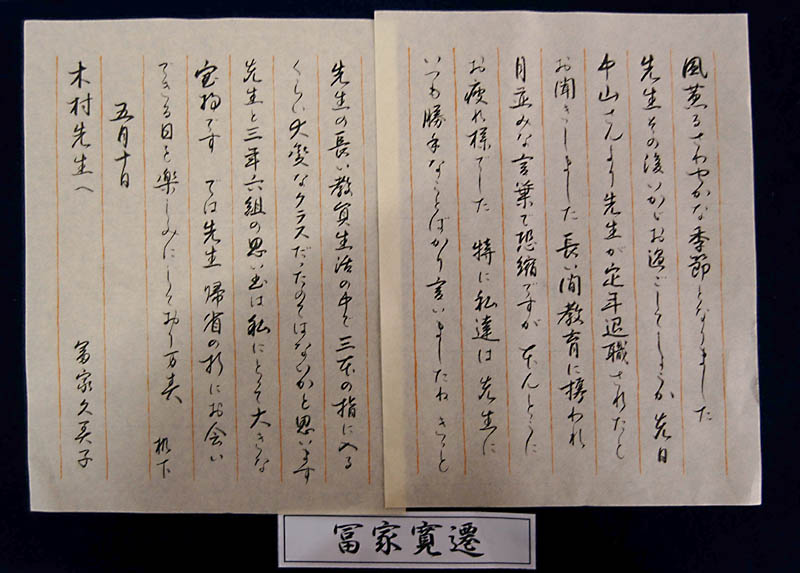 風薫るさわやかな季節となりました
先生その後いかがお過ごしでしょうか 先日
中山さんより先生が定年退職されたと
お聞きしました 長い間教育に携われ
月並みな言葉で恐縮ですが ほんとうに
お疲れ様でした 特に私達は先生に
いつも勝手なことばかり言いましたね きっと
先生の長い教員生活の中で三本の指に入る
くらい大変なクラスだったのではないかと思います
先生と三年六組の思い出は私にとって大きな
宝物です では先生 帰省の折にお会い
できる日を楽しみにしております
五月十日
冨家久美子
木村先生へ
机下
冨家寛遷